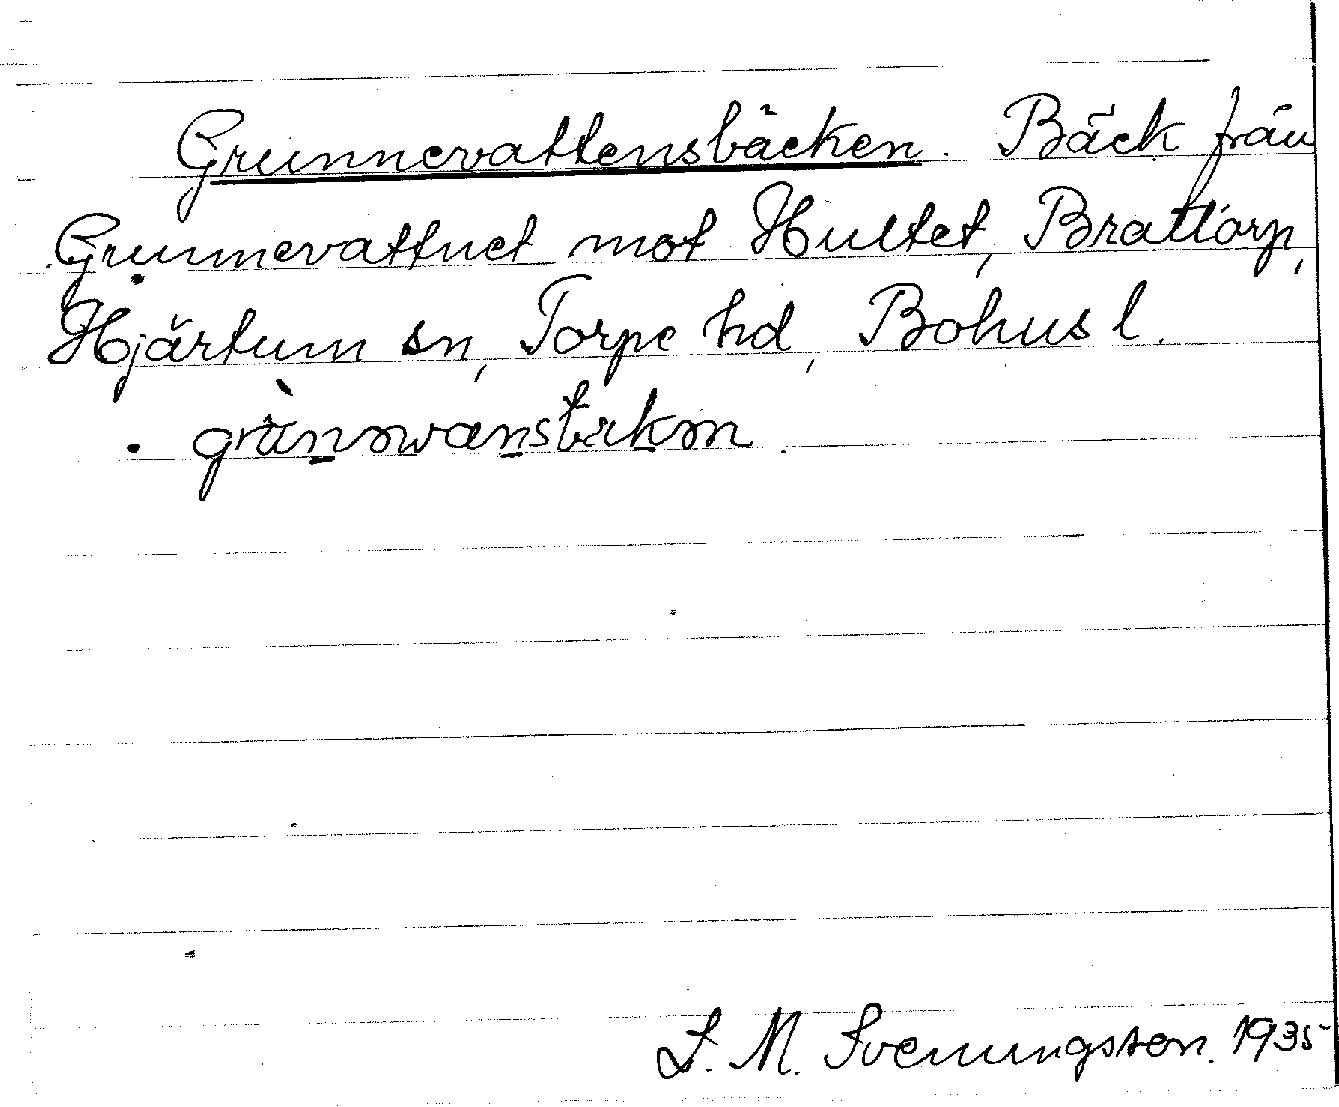 Grunnevattensbäcken. Bäck från
Grunnevattnet mot Hultet, Brattorp,
Hjärtum sn, Torpe hd, Bohus l.
S. M. Svenungsson. 1935